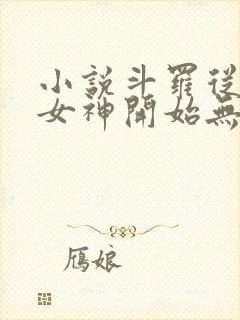 小說斗羅從
女神開始無
鴈娘